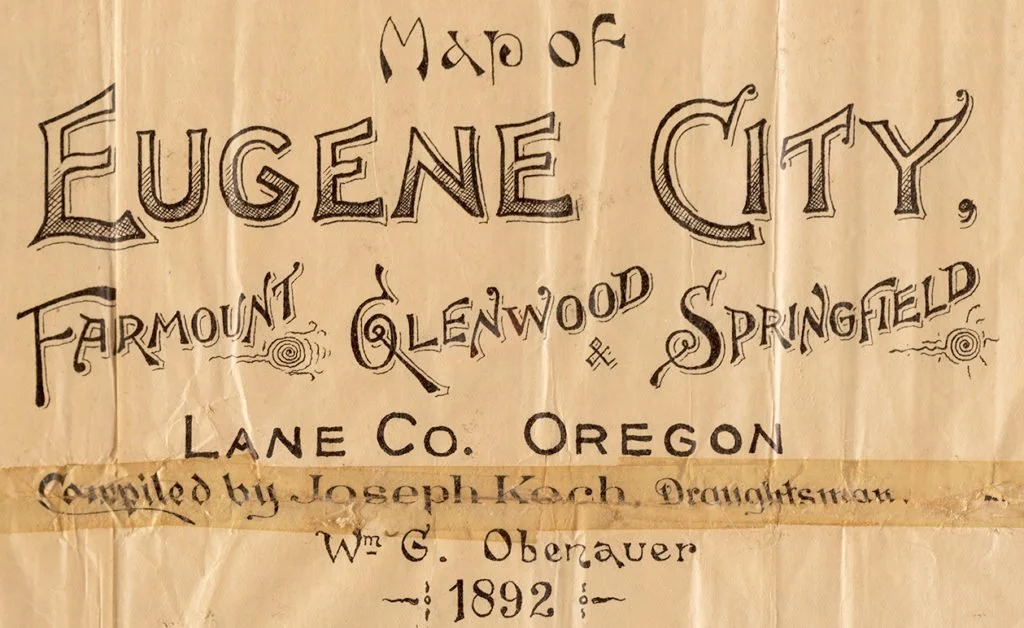 Map of
EUGENE CITY,
FARMOUNT GLENWOOD & SPRINGFIELD
LANE CO. OREGON
Compiled by Joseph Koch, Draughtsman.
Wm G. Obenauer
1892